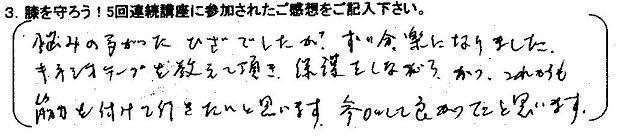 3. 膝を守ろう!5回連続講座に参加されたご感想をご記入下さい。
悩みの多かった ひざでしたが、ずい分楽になりました。
キネシオテープを教えて頂き、保護をしながら、かつ、これからも
筋力も付けて行きたいと思います。参加して良かったと思います。